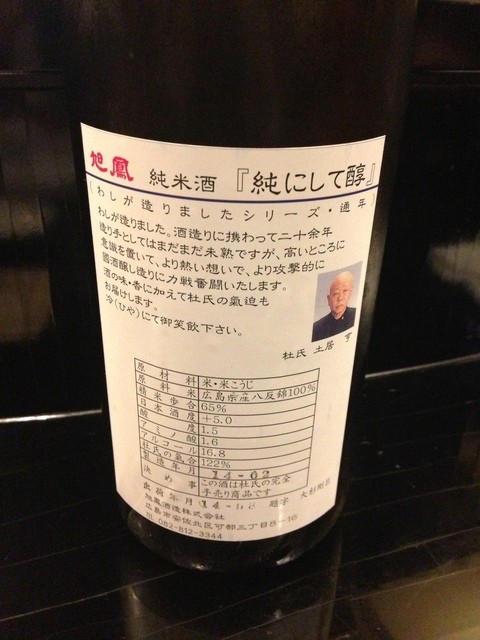 旭鳳 純米酒 『純にして醇』
(わしが造りましたシリーズ・通年)
わしが造りました。酒造りに携わって二十余年
造り手としてはまだまだ未熟ですが、高いところに
意識を置いて、より熱い想いで、より攻撃的に
國酒醸し造りに力戦奮闘いたします。
酒の味・香に加えて杜氏の氣迫も
お届けします。
冷(ひや)にて御笑飲下さい。
杜氏 土居 亨
原材料 米・米こうじ
原料米 広島県産八反錦100%
精米歩合 65%
日本酒度 +5.0
酸度 1.5
アミノ酸 1.6
アルコール 16.8
杜氏の氣合 122%
製造年月 14-02
決め事 この酒は杜氏の完全
手売り商品です
出荷年月 題字
旭鳳酒造株式会社
広島市安佐北区可部三丁目8-16
TEL 082-812-3344